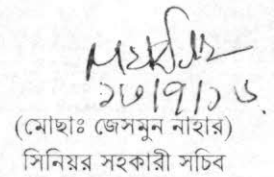 ১৩/৭/১৬
(মোছাঃ জেসমুন নাহার)
সিনিয়র সহকারী সচিব